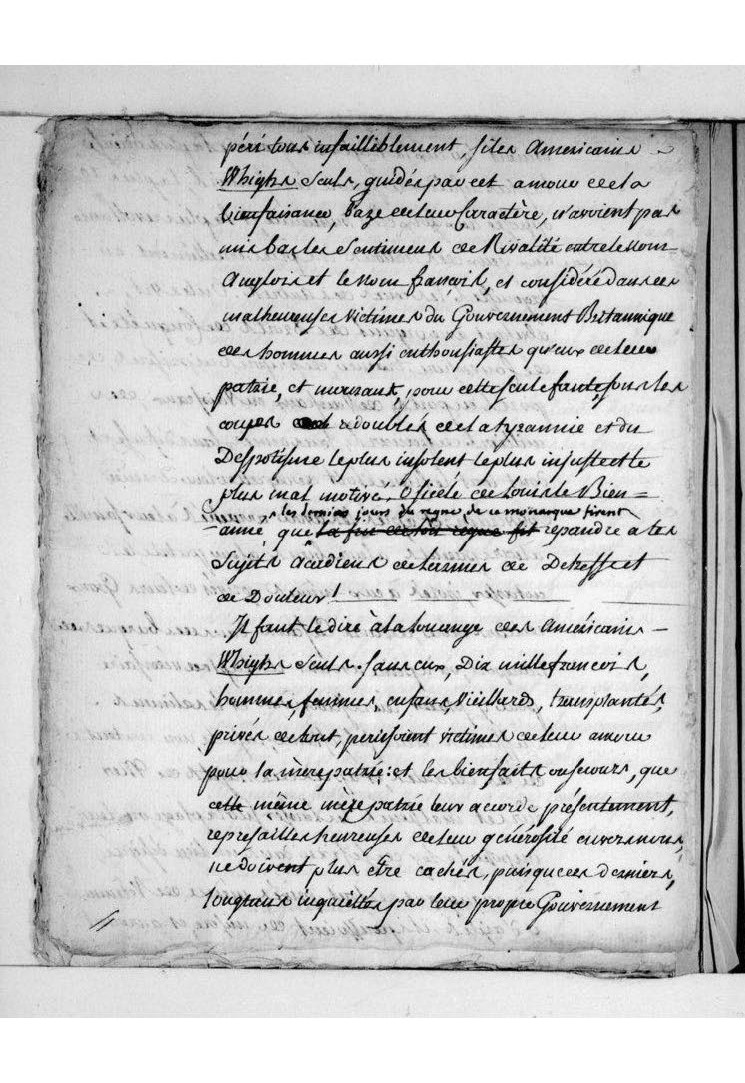 péri tous infailliblement, si les Americains
Whighs seuls, guidés par cet amour de la
bienfaisance, baze de leur Caractère, n'avoient pas
mis bas les sentimens de Rivalité entre le nom
Anglois et le nom françois, et considéré dans ces
malheureuses victimes du Gouvernement Britannique
des hommes aussi enthousiastes qu'eux de leur
patrie, et mourant, pour cette seule faute, sous les
coups redoublés de la tyrannie et du
Despotisme le plus insolent le plus injuste et le
plus mal motivé. O siécle de Louis le Bien =
les derniers jours du regne de ce monarque firent
aimé, que la fin de ton règne fit repandre a tes
Sujets Acadiens de larmes de Detresse et
de Douleur!
Il faut le dire à la louange des Américains
Whighs seuls. sans eux, Dix mille francois,
hommes, femmes, enfans, vieillards, transplantés,
privés de tout, perissoient victimes de leur amour
pour la mère patrie: et les bienfaits ou secours, que
cette même mère patrie leur acorde présentement,
represailles heureuses de leur générosité envers nous,
ne doivent plus être cachés, puisque ces derniers,
longtans inquiettés par leur propre Gouvernement